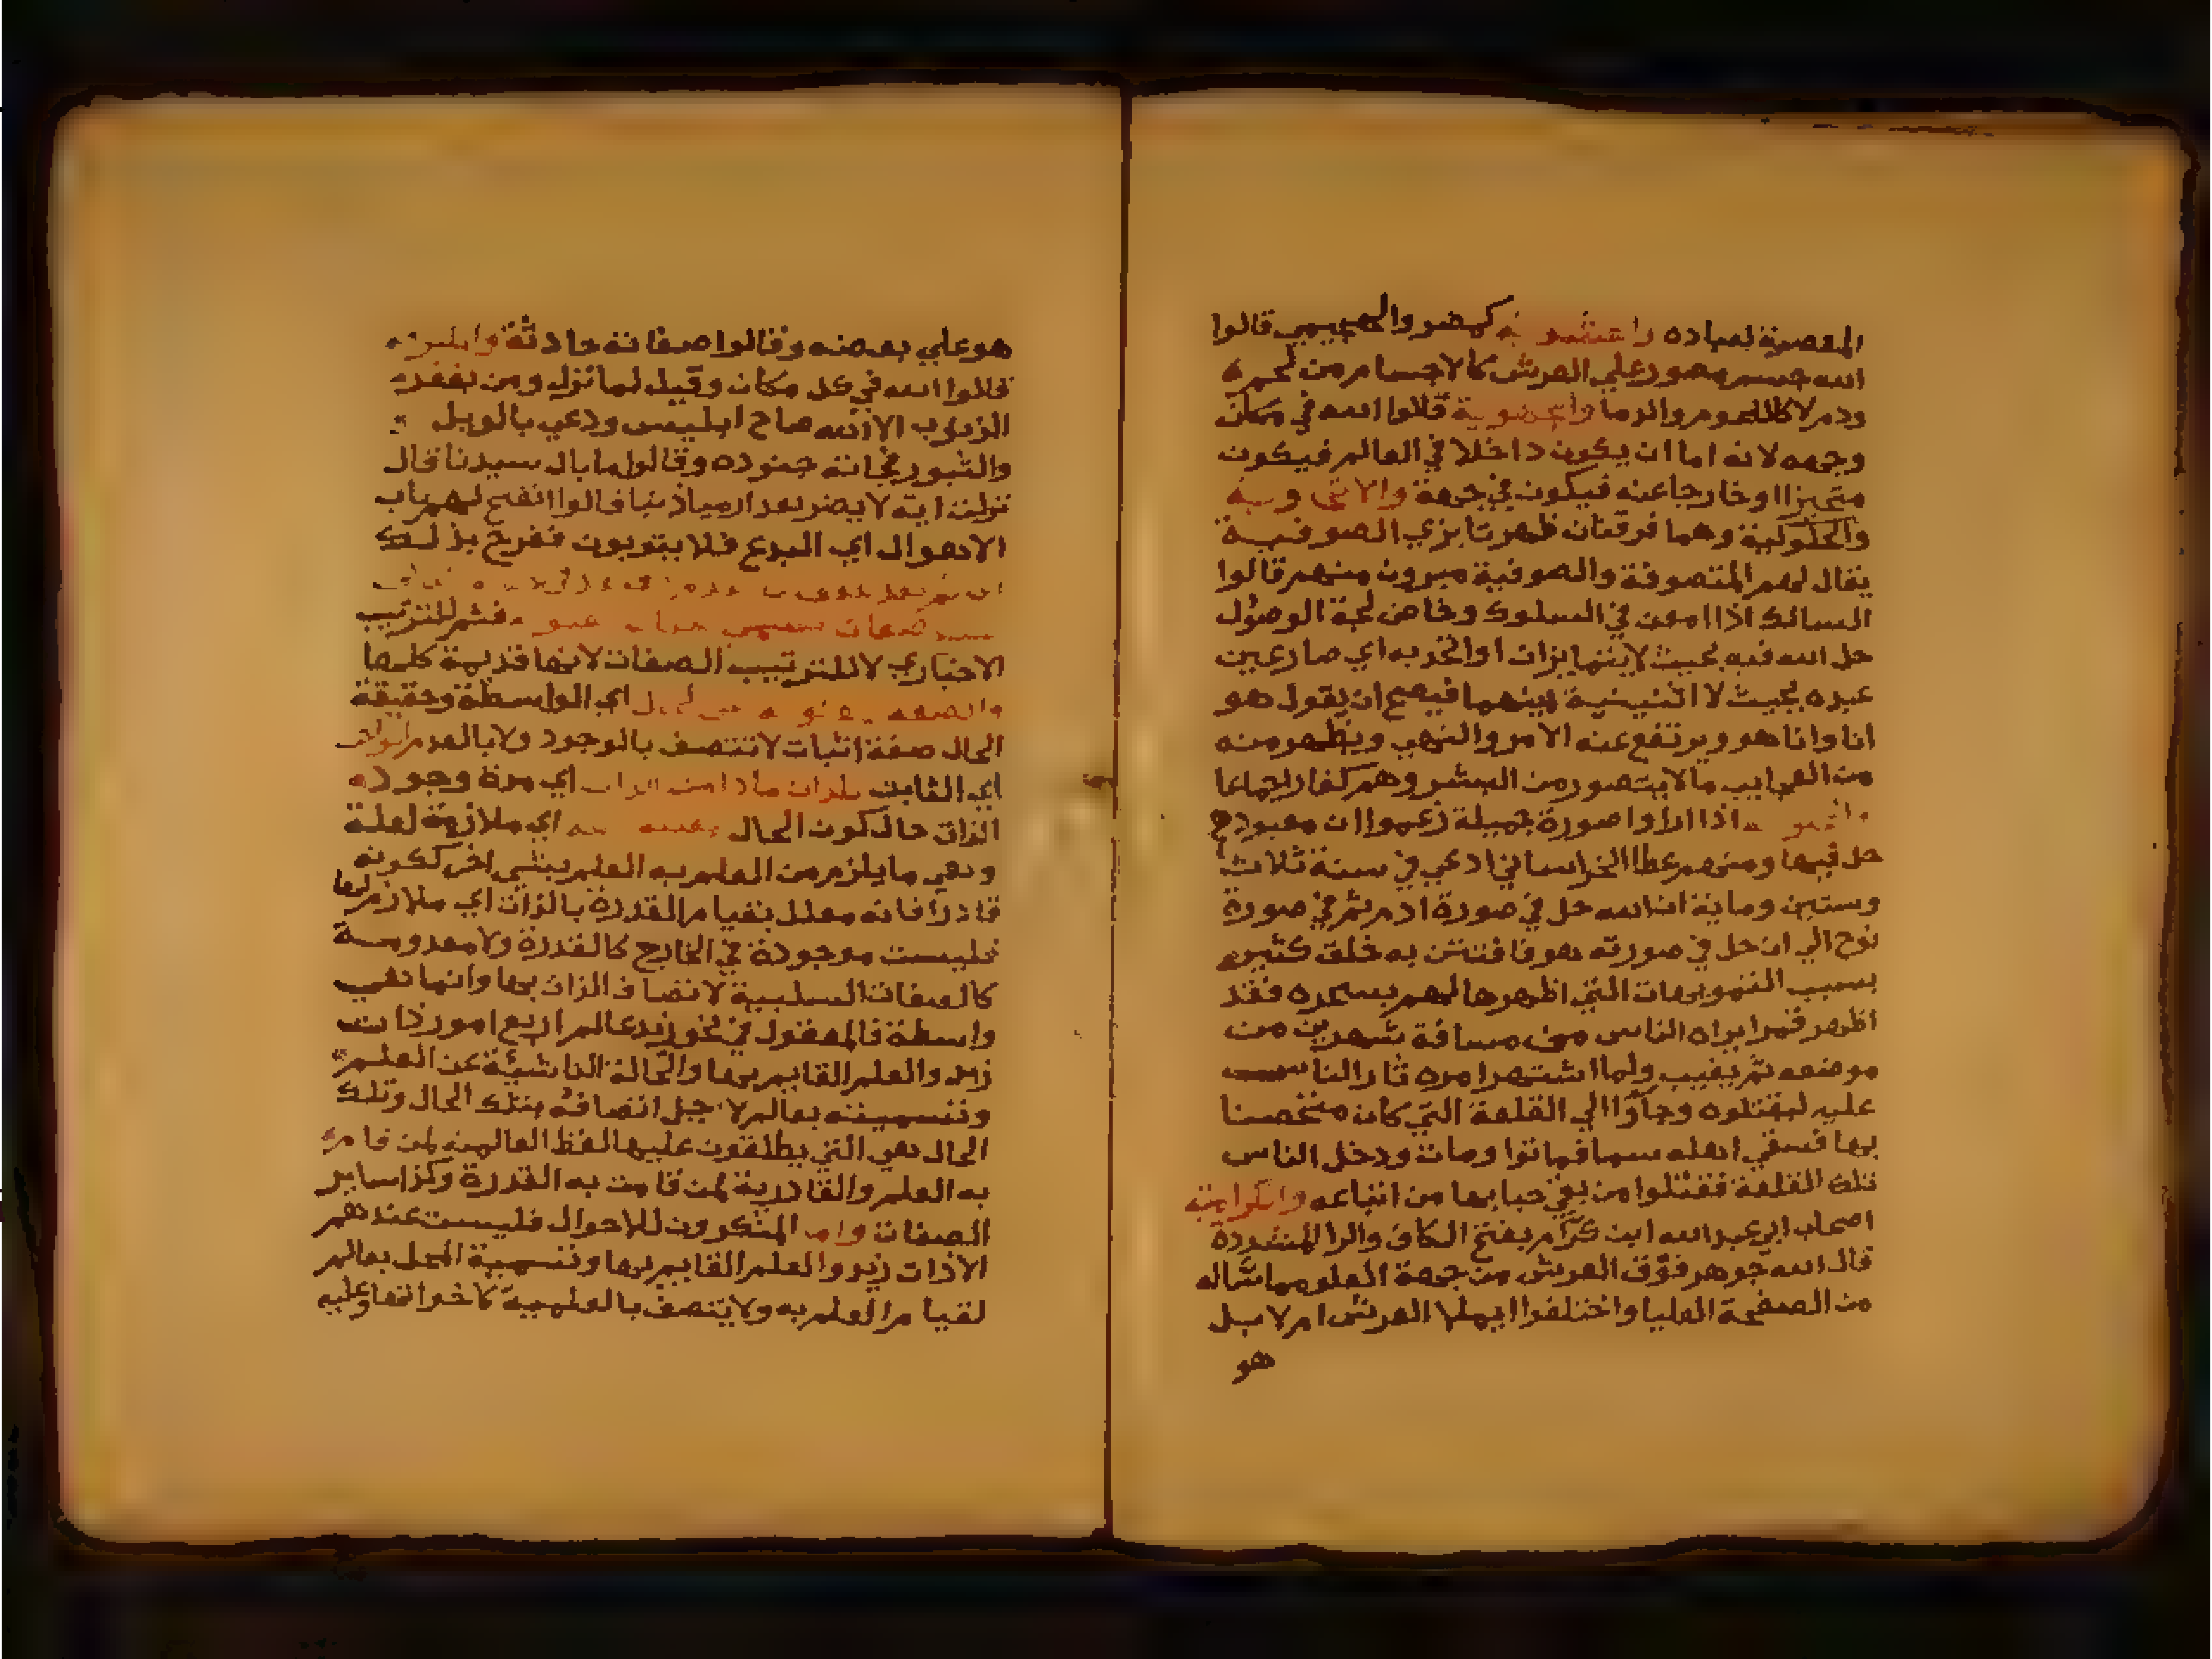 لعباده كهضر والهجيمي قالوا
الله جسم مصور علي العرش كالاجسام من لحم
ودم لا كاللحوم والدما قالوا الله في مكان
وجهه لانه اما ان يكون داخلا في العالم فيكون
متحيزا او خارجا عنه فيكون في جهة
والحلولية وهما فرقتان ظهرتا بزي الصوفية
يقال لهم المتصوفة والصوفية مبرون منهم قالوا
السالك اذا امعن في السلوك وخاض لجة الوصول
حل الله فيه بحيث لا يتمايزان او اتحد به اي صار عين
عبده بحيث لا اثنينية بينهما فيصح ان يقول هو
انا وانا هو ويرتفع عنه الامر والنهي ويظهر منه
من العجايب مالا يتصور من البشر وهم كفار اجماعا
اذا راوا صورة جميلة زعموا ان معبودهم
حل فيها ومنهم عطا الخراساني ادعي في سنة ثلاث
وستين وماية ان الله حل في صورة ادم ثم في صورة
نوح الي ان حل في صورته هو فافتتن به خلق كثير
بسبب التمويهات التي اظهرها لهم بسحره فقد
اظهر قمرا يراه الناس من مسافة شهرين من
موضعه ثم يغيب ولما اشتهر امره ثار الناس
عليه ليقتلوه وجاوا الي القلعة التي كان متحصنا
بها فسقي اهله سما فماتوا ومات ودخل الناس
تلك القلعة فقتلوا من بقي حيا بها من اتباعه والكرامية
اصحاب ابي عبد الله ابن كرام بفتح الكاف والرا المشددة
قال الله جوهر فوق العرش من جهة العلو مماسا له
من الصفحة العليا واختلفوا ايملا العرش ام لا بل
هو
هو علي بعضه وقالوا صفاته حادثة
قالوا الله في كل مكان وقيل لما نزل ومن يغفر
الذنوب الا الله صاح ابليس ودعي بالويل
والثبور فجاته جنوده وقالوا ما بال سيدنا قال
نزلت اية لا يضر بعدها ذنبا قالوا انفتح لهم باب
الاهوال اي البدع فلا يتوبون ففرح بذلك
فثم للترتيب
الاخباري لا للترتيب الصفات لانها قديمة كلها
اي الواسطة وحقيقة
الحال صفة اثبات لا تتصف بالوجود ولا بالعدم
اي الثابت اي مدة وجود
الذات حال كون الحال اي ملازمة لعلة
وهي ما يلزم من العلم به العلم بشي اخر ككونه
قادرا فانه معلل بقيام القدرة بالذات اي ملازم لها
فليست موجودة في الخارج كالقدرة ولا معدومة
كالصفات السلبية لاتصاف الذات بها وانما هي
واسطة فالمعقول في نحو زيد عالم اربع امور ذات
زيد والعلم القايم بها والحالة الناشية عن العلم
وتسميته بعالم لاجل اتصافه بتلك الحال وتلك
الحال هي التي يطلقون عليها لفظ العالمية لمن قام
به العلم والقادرية لمن قامت به القدرة وكذا ساير
الصفات واما المنكرون للاحوال فليست عندهم
الا ذات زيد والعلم القايم بها وتسمية المحل بعالم
لقيام العلم به ولا يتصف بالعلمية كاخواتها وعليه